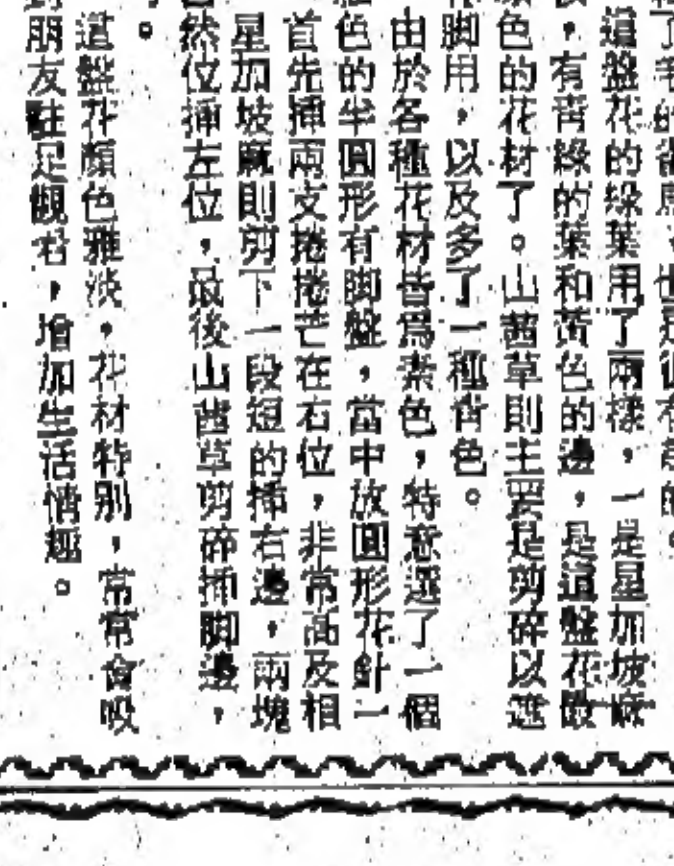 了毛的
這盤花的綠葉用了兩樣，一是星加坡麻
，有青綠的葉和黃色的邊，是這盤花最
色的花材了。山茜草則主要是剪碎以遮
脚用，以及多了一種青色。
由於各種花材皆爲素色，特意選了一個
色的半圓形有脚盤，當中放圓形花針一
首先插兩支捲捲芒在右位，非常高及相
星加坡麻則剪下一段短的插右邊，兩塊
然位插左位，最後山茜草剪碎插脚邊，
。
這盤花顏色雅淡，花材特別，常常會吸
朋友駐足觀看，增加生活情趣。